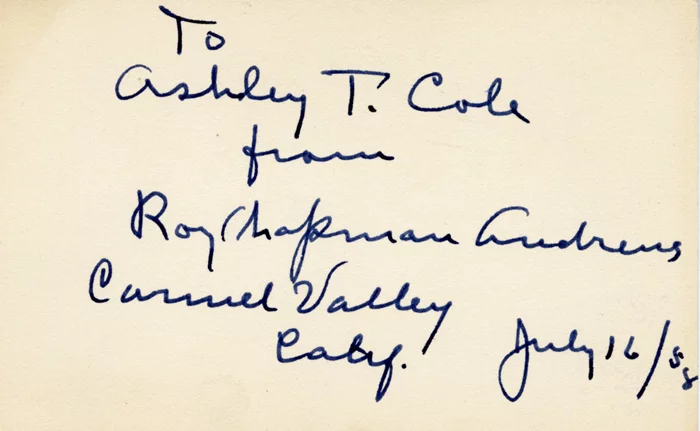 To
Ashley T. Cole
from
Roy Chapman Andrews
Carmel Valley
Calif. July 16/58